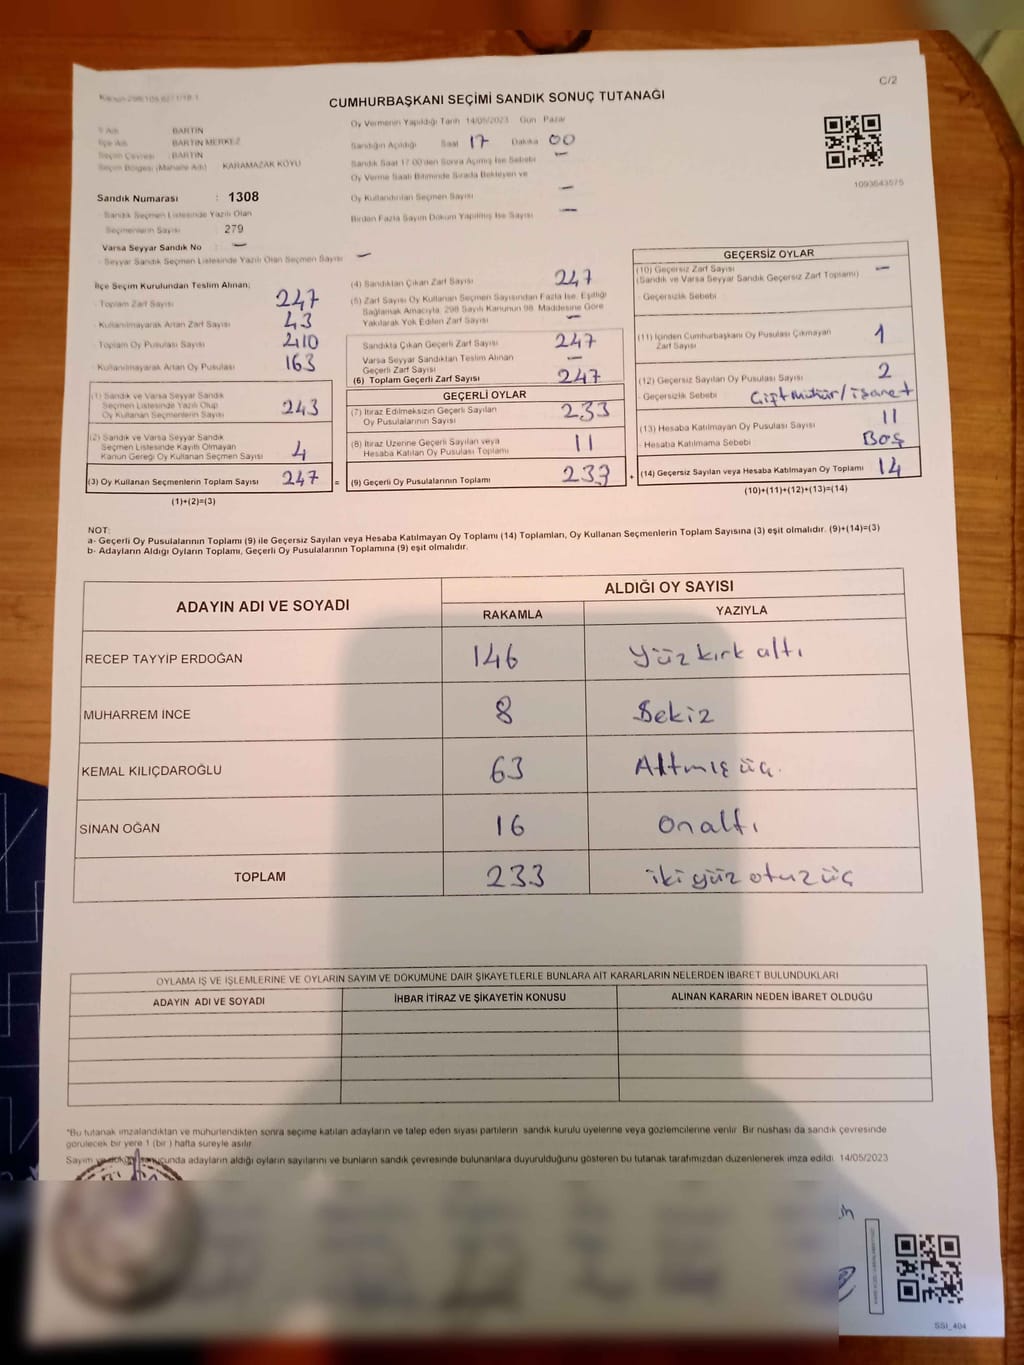 C/2
CUMHURBAŞKANI SEÇİMİ SANDIK SONUÇ TUTANAĞI
1093643575
İl Adı BARTIN
İlçe Adı BARTIN MERKEZ
Seçim Çevresi BARTIN
Seçim Bölgesi (Mahalle Adı) KARAMAZAK KÖYÜ
Sandık Numarası : 1308
Sandık Seçmen Listesinde Yazılı Olan
Seçmenlerin Sayısı : 279
Varsa Seyyar Sandık No : —
Seyyar Sandık Seçmen Listesinde Yazılı Olan Seçmen Sayısı —
Oy Vermenin Yapıldığı Tarih 14/05/2023 Gün Pazar
Sandığın Açıldığı Saat 17 Dakika 00
Sandık Saat 17.00'den Sonra Açılmış İse Sebebi —
Oy Verme Saati Bitiminde Sırada Bekleyen ve
Oy Kullandırılan Seçmen Sayısı —
Birden Fazla Sayım Döküm Yapılmış İse Sayısı —
İlçe Seçim Kurulundan Teslim Alınan;
- Toplam Zarf Sayısı 247
- Kullanılmayarak Artan Zarf Sayısı 43
Toplam Oy Pusulası Sayısı 410
- Kullanılmayarak Artan Oy Pusulası 163
(1) Sandık ve Varsa Seyyar Sandık
Seçmen Listesinde Yazılı Olup
Oy Kullanan Seçmenlerin Sayısı 243
(2) Sandık ve Varsa Seyyar Sandık
Seçmen Listesinde Kayıtlı Olmayan
Kanun Gereği Oy Kullanan Seçmen Sayısı 4
(3) Oy Kullanan Seçmenlerin Toplam Sayısı 247 =
(1)+(2)=(3)
(4) Sandıktan Çıkan Zarf Sayısı 247
(5) Zarf Sayısı Oy Kullanan Seçmen Sayısından Fazla İse, Eşitliği
Sağlamak Amacıyla, 298 Sayılı Kanunun 98. Maddesine Göre
Yakılarak Yok Edilen Zarf Sayısı —
Sandıkta Çıkan Geçerli Zarf Sayısı 247
Varsa Seyyar Sandıktan Teslim Alınan
Geçerli Zarf Sayısı —
(6) Toplam Geçerli Zarf Sayısı 247
GEÇERLİ OYLAR
(7) İtiraz Edilmeksizin Geçerli Sayılan
Oy Pusulalarının Sayısı 233
(8) İtiraz Üzerine Geçerli Sayılan veya
Hesaba Katılan Oy Pusulası Toplamı 11
(9) Geçerli Oy Pusulalarının Toplamı 233 +
GEÇERSİZ OYLAR
(10) Geçersiz Zarf Sayısı —
(Sandık ve Varsa Seyyar Sandık Geçersiz Zarf Toplamı)
- Geçersizlik Sebebi
(11) İçinden Cumhurbaşkanı Oy Pusulası Çıkmayan
Zarf Sayısı 1
(12) Geçersiz Sayılan Oy Pusulası Sayısı 2
- Geçersizlik Sebebi Çift Mühür/işaret
(13) Hesaba Katılmayan Oy Pusulası Sayısı 11
- Hesaba Katılmama Sebebi Boş
(14) Geçersiz Sayılan veya Hesaba Katılmayan Oy Toplamı 14
(10)+(11)+(12)+(13)=(14)
NOT:
a- Geçerli Oy Pusulalarının Toplamı (9) ile Geçersiz Sayılan veya Hesaba Katılmayan Oy Toplamı (14) Toplamları, Oy Kullanan Seçmenlerin Toplam Sayısına (3) eşit olmalıdır. (9)+(14)=(3)
b- Adayların Aldığı Oyların Toplamı, Geçerli Oy Pusulalarının Toplamına (9) eşit olmalıdır.
ADAYIN ADI VE SOYADI ALDIĞI OY SAYISI
RAKAMLA YAZIYLA
RECEP TAYYİP ERDOĞAN 146 Yüz kırk altı
MUHARREM İNCE 8 Sekiz
KEMAL KILIÇDAROĞLU 63 Altmış üç
SİNAN OĞAN 16 onaltı
TOPLAM 233 iki yüz otuz üç
OYLAMA İŞ VE İŞLEMLERİNE VE OYLARIN SAYIM VE DÖKÜMÜNE DAİR ŞİKAYETLERLE BUNLARA AİT KARARLARIN NELERDEN İBARET BULUNDUKLARI
ADAYIN ADI VE SOYADI İHBAR İTİRAZ VE ŞİKAYETİN KONUSU ALINAN KARARIN NEDEN İBARET OLDUĞU
*Bu tutanak imzalandıktan ve mühürlendikten sonra seçime katılan adayların ve talep eden siyasi partilerin sandık kurulu üyelerine veya gözlemcilerine verilir. Bir nüshası da sandık çevresinde
görülecek bir yere 1 (bir) hafta süreyle asılır.
Sayım ve sonucunda adayların aldığı oyların sayılarını ve bunların sandık çevresinde bulunanlara duyurulduğunu gösteren bu tutanak tarafımızdan düzenlenerek imza edildi. 14/05/2023
SSI_404